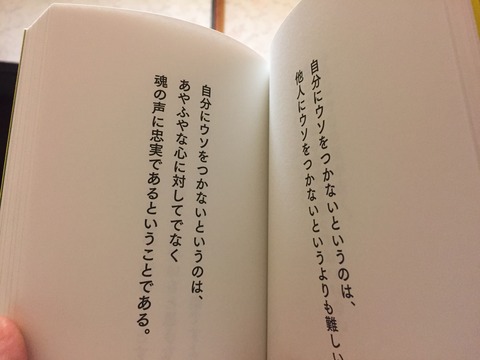 自分にウソをつかないというのは、
他人にウソをつかないというよりも難しい
自分にウソをつかないというのは、
あやふやな心に対してでなく
魂の声に忠実であるということである。